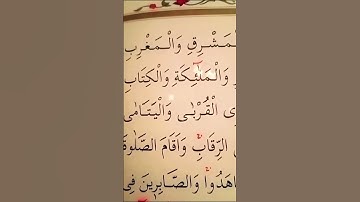 الْمَشْرِقِ وَالْمَغْرِبِ
وَالْمَلٰٓئِكَةِ وَالْكِتَابِ
الْقُرْبٰى وَالْيَتَامٰى
الرِّقَابِۚ وَاَقَامَ الصَّلٰوةَ
عَاهَدُواۚ وَالصَّابِر۪ينَ فِي